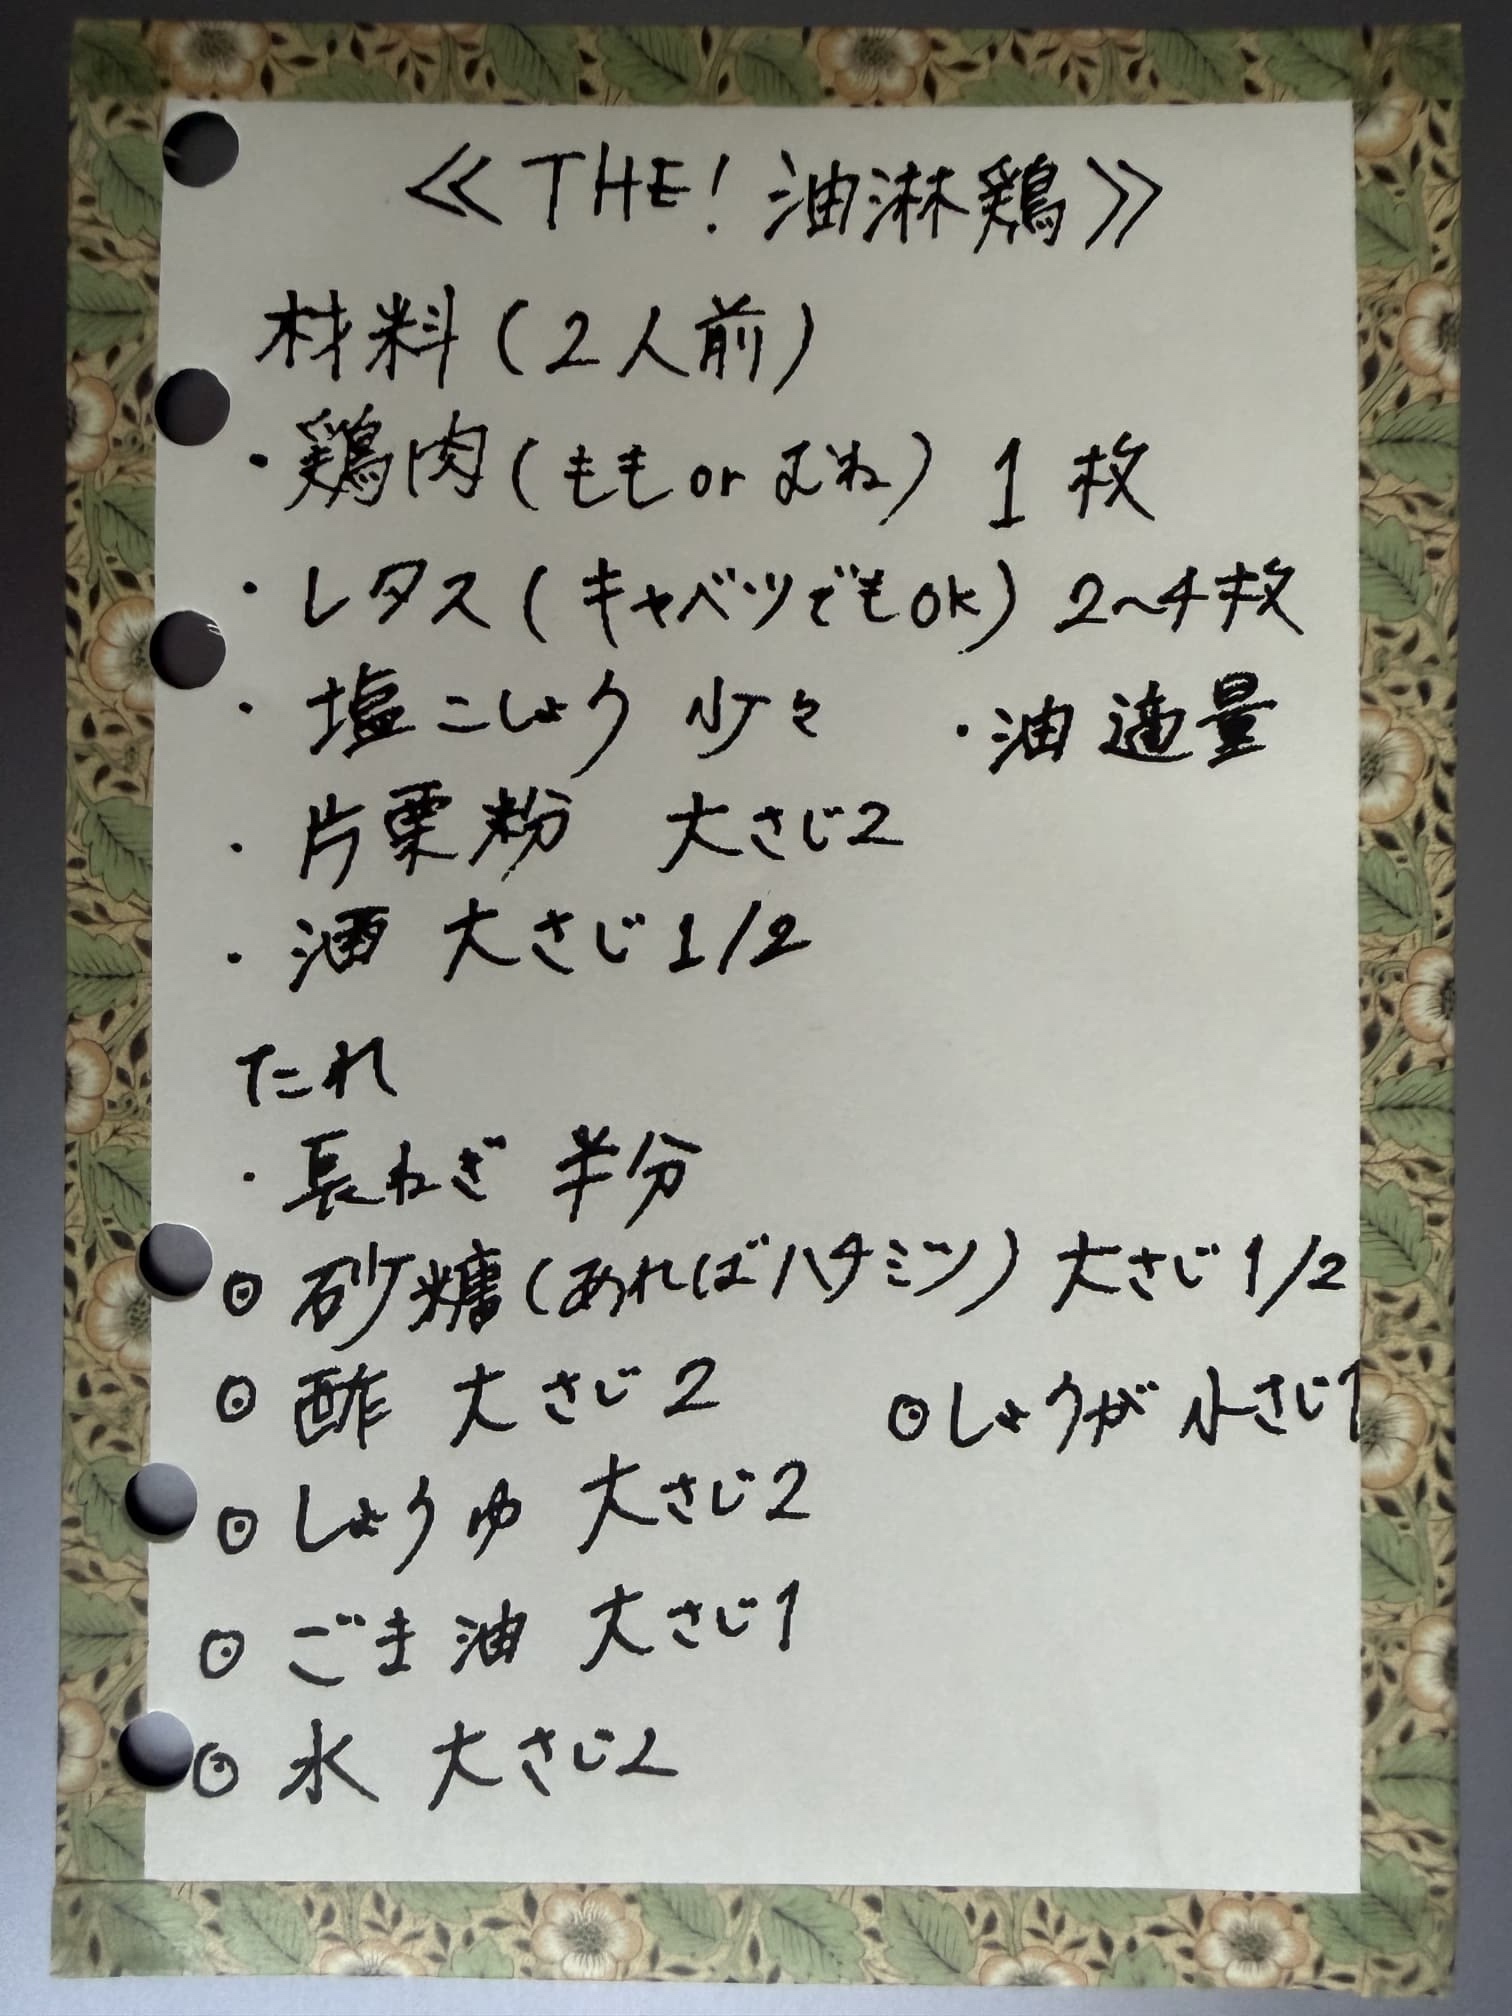 ≪THE! 油淋鶏≫
材料(2人前)
・鶏肉(ももorむね) 1枚
・レタス(キャベツでもOK) 2〜4枚
・塩こしょう 少々 ・油 適量
・片栗粉 大さじ2
・酒 大さじ1/2
たれ
・長ねぎ 半分
◎砂糖(あればハチミツ) 大さじ1/2
◎酢 大さじ2 ◎しょうが 小さじ1
◎しょうゆ 大さじ2
◎ごま油 大さじ1
◎水 大さじ2